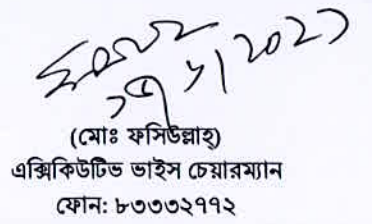 (মোঃ ফসিউল্লাহ্)
এক্সিকিউটিভ ভাইস চেয়ারম্যান
ফোন: ৮৩৩৩২৭৭২